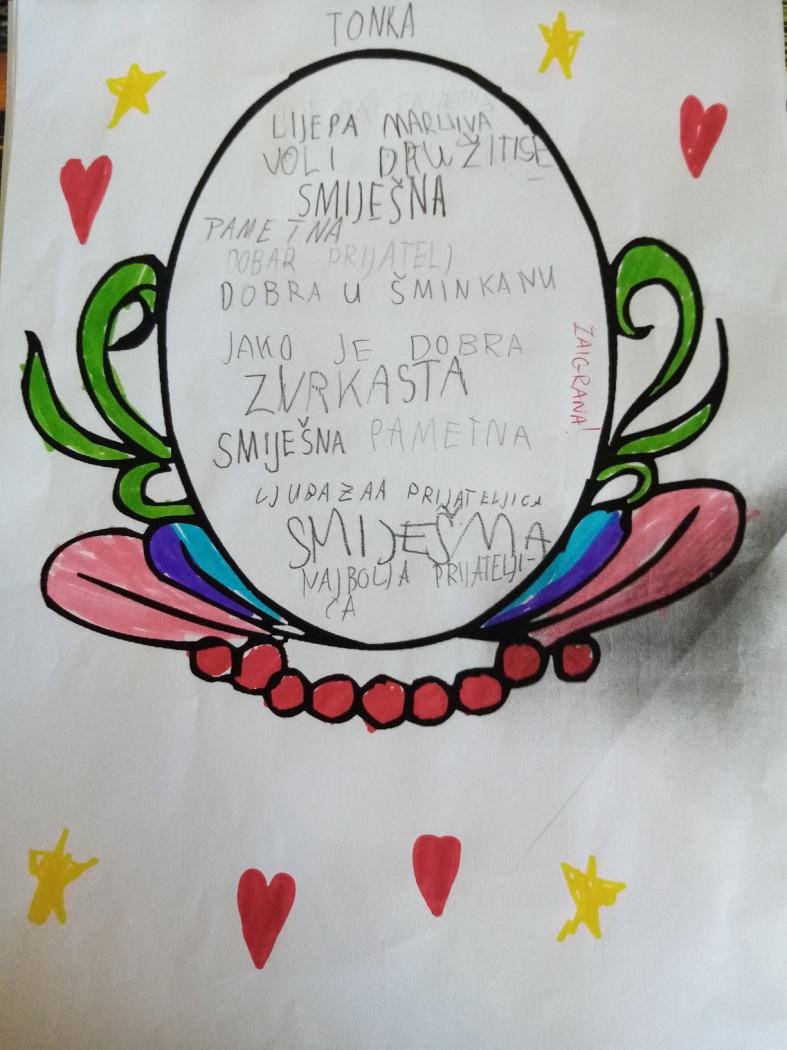 TONKA
LIJEPA MARLJIVA
VOLI DRUŽITISE
SMIJEŠNA
PAMETNA
DOBAR PRIJATELJ
DOBRA U ŠMINKANU
JAKO JE DOBRA
ZAIGRANA!
ZVRKASTA
SMIJEŠNA PAMETNA
LJUDAZAA PRIJATELJICA
SMIJEŠMA
NAJBOLJA PRIJATELJI-
CA